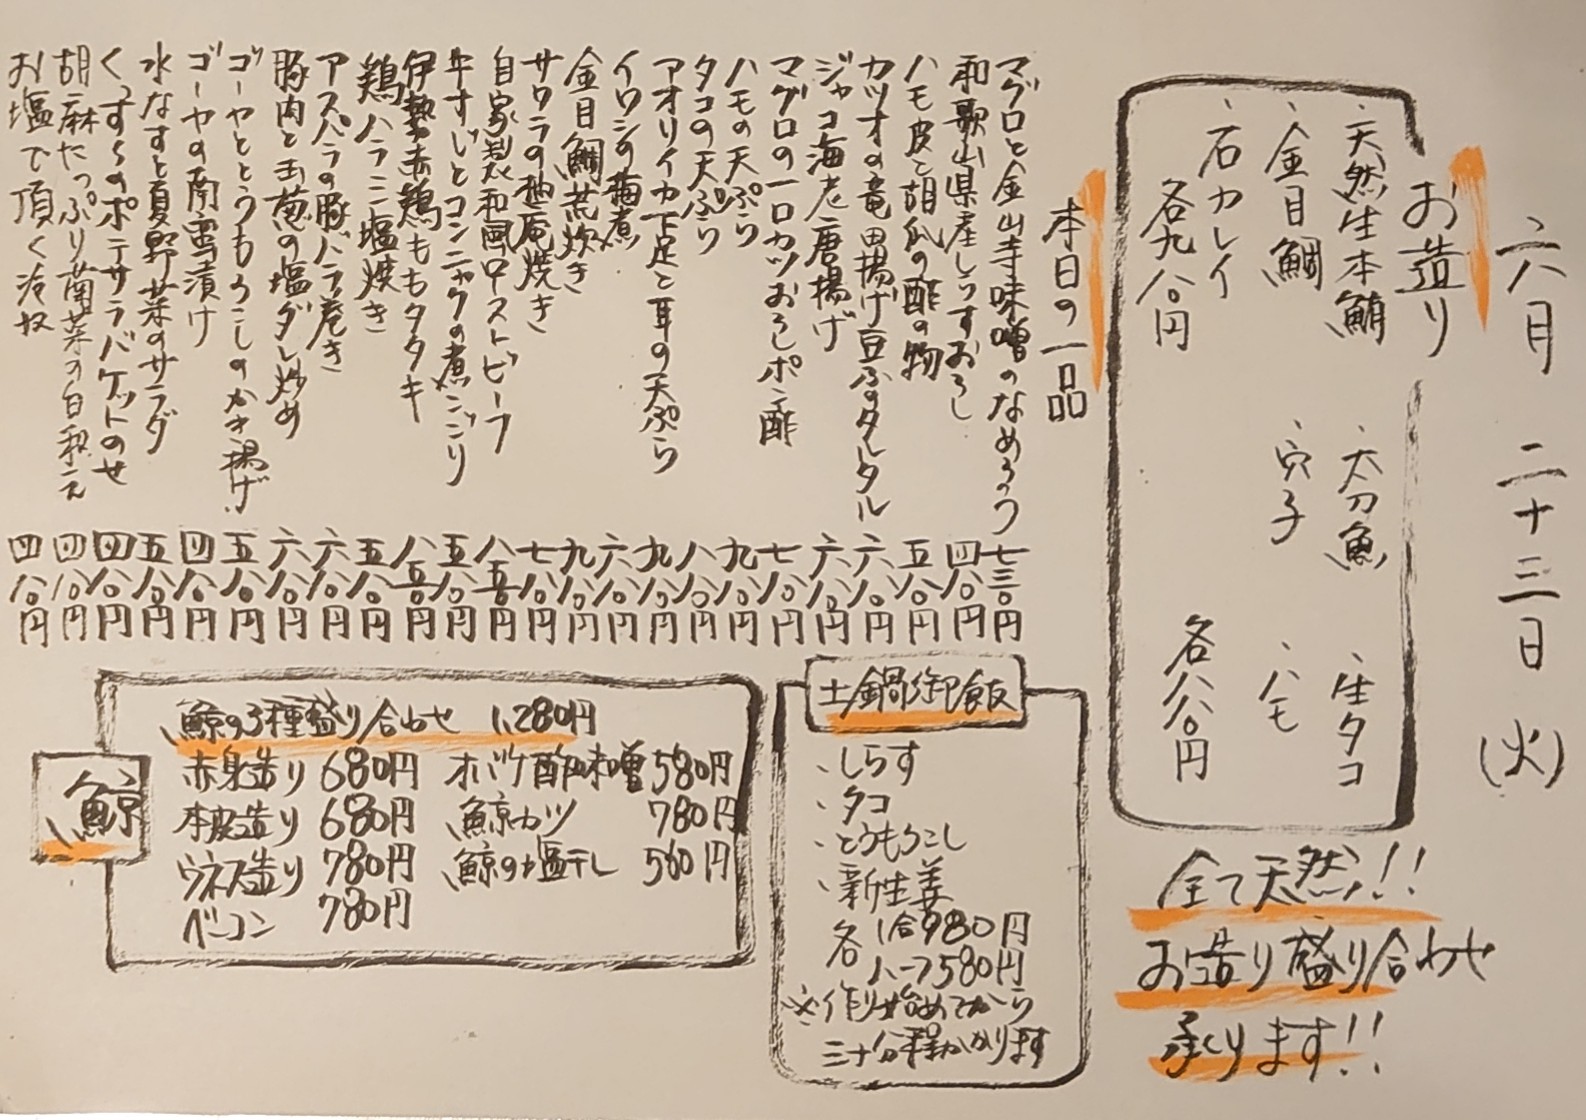 六月 二十三日 (火)
お造り
、天然生本鮪 、太刀魚 、生タコ
、金目鯛 、穴子 、ハモ
、石カレイ
各九八〇円 各八八〇円
全て天然!!
お造り盛り合わせ
承ります!!
本日の一品
マグロと金山寺味噌のなめろう 七三〇円
和歌山県産しらすおろし 四八〇円
ハモ皮と胡瓜の酢の物 五八〇円
カツオの竜田揚げ豆ふのタルタル 六八〇円
ジャコ海老唐揚げ 六八〇円
マグロの一口カツおろしポン酢 七八〇円
ハモの天ぷら 九八〇円
タコの天ぷら 八八〇円
アオリイカ下足と耳の天ぷら 九八〇円
イワシの梅煮 六八〇円
金目鯛荒炊き 九八〇円
サワラの柚庵焼き 七八〇円
自家製和風ローストビーフ 八五〇円
牛すじとコンニャクの煮こごり 五八〇円
伊勢赤鶏ももタタキ 八五〇円
鶏ハラミ塩焼き 五八〇円
アスパラの豚バラ巻き 六八〇円
豚肉と玉葱の塩ダレ炒め 六八〇円
ゴーヤととうもろこしのかき揚げ 五八〇円
ゴーヤの南蛮漬け 四八〇円
水なすと夏野菜のサラダ 五八〇円
くずし のポテサラバケットのせ 四八〇円
胡麻たっぷり菊菜の白和え 四八〇円
お塩で頂く冷奴 四八〇円
土鍋御飯
、しらす
、タコ
、とうもろこし
、新生姜
各 1合980円
ハーフ580円
※作り始めてから
三十分程かかります
鯨
鯨の3種盛り合わせ 1,280円
赤身造り 680円 オバケ酢味噌 580円
本皮造り 680円 鯨カツ 780円
ウネス造り 780円 鯨の塩干し 560円
ベーコン 780円